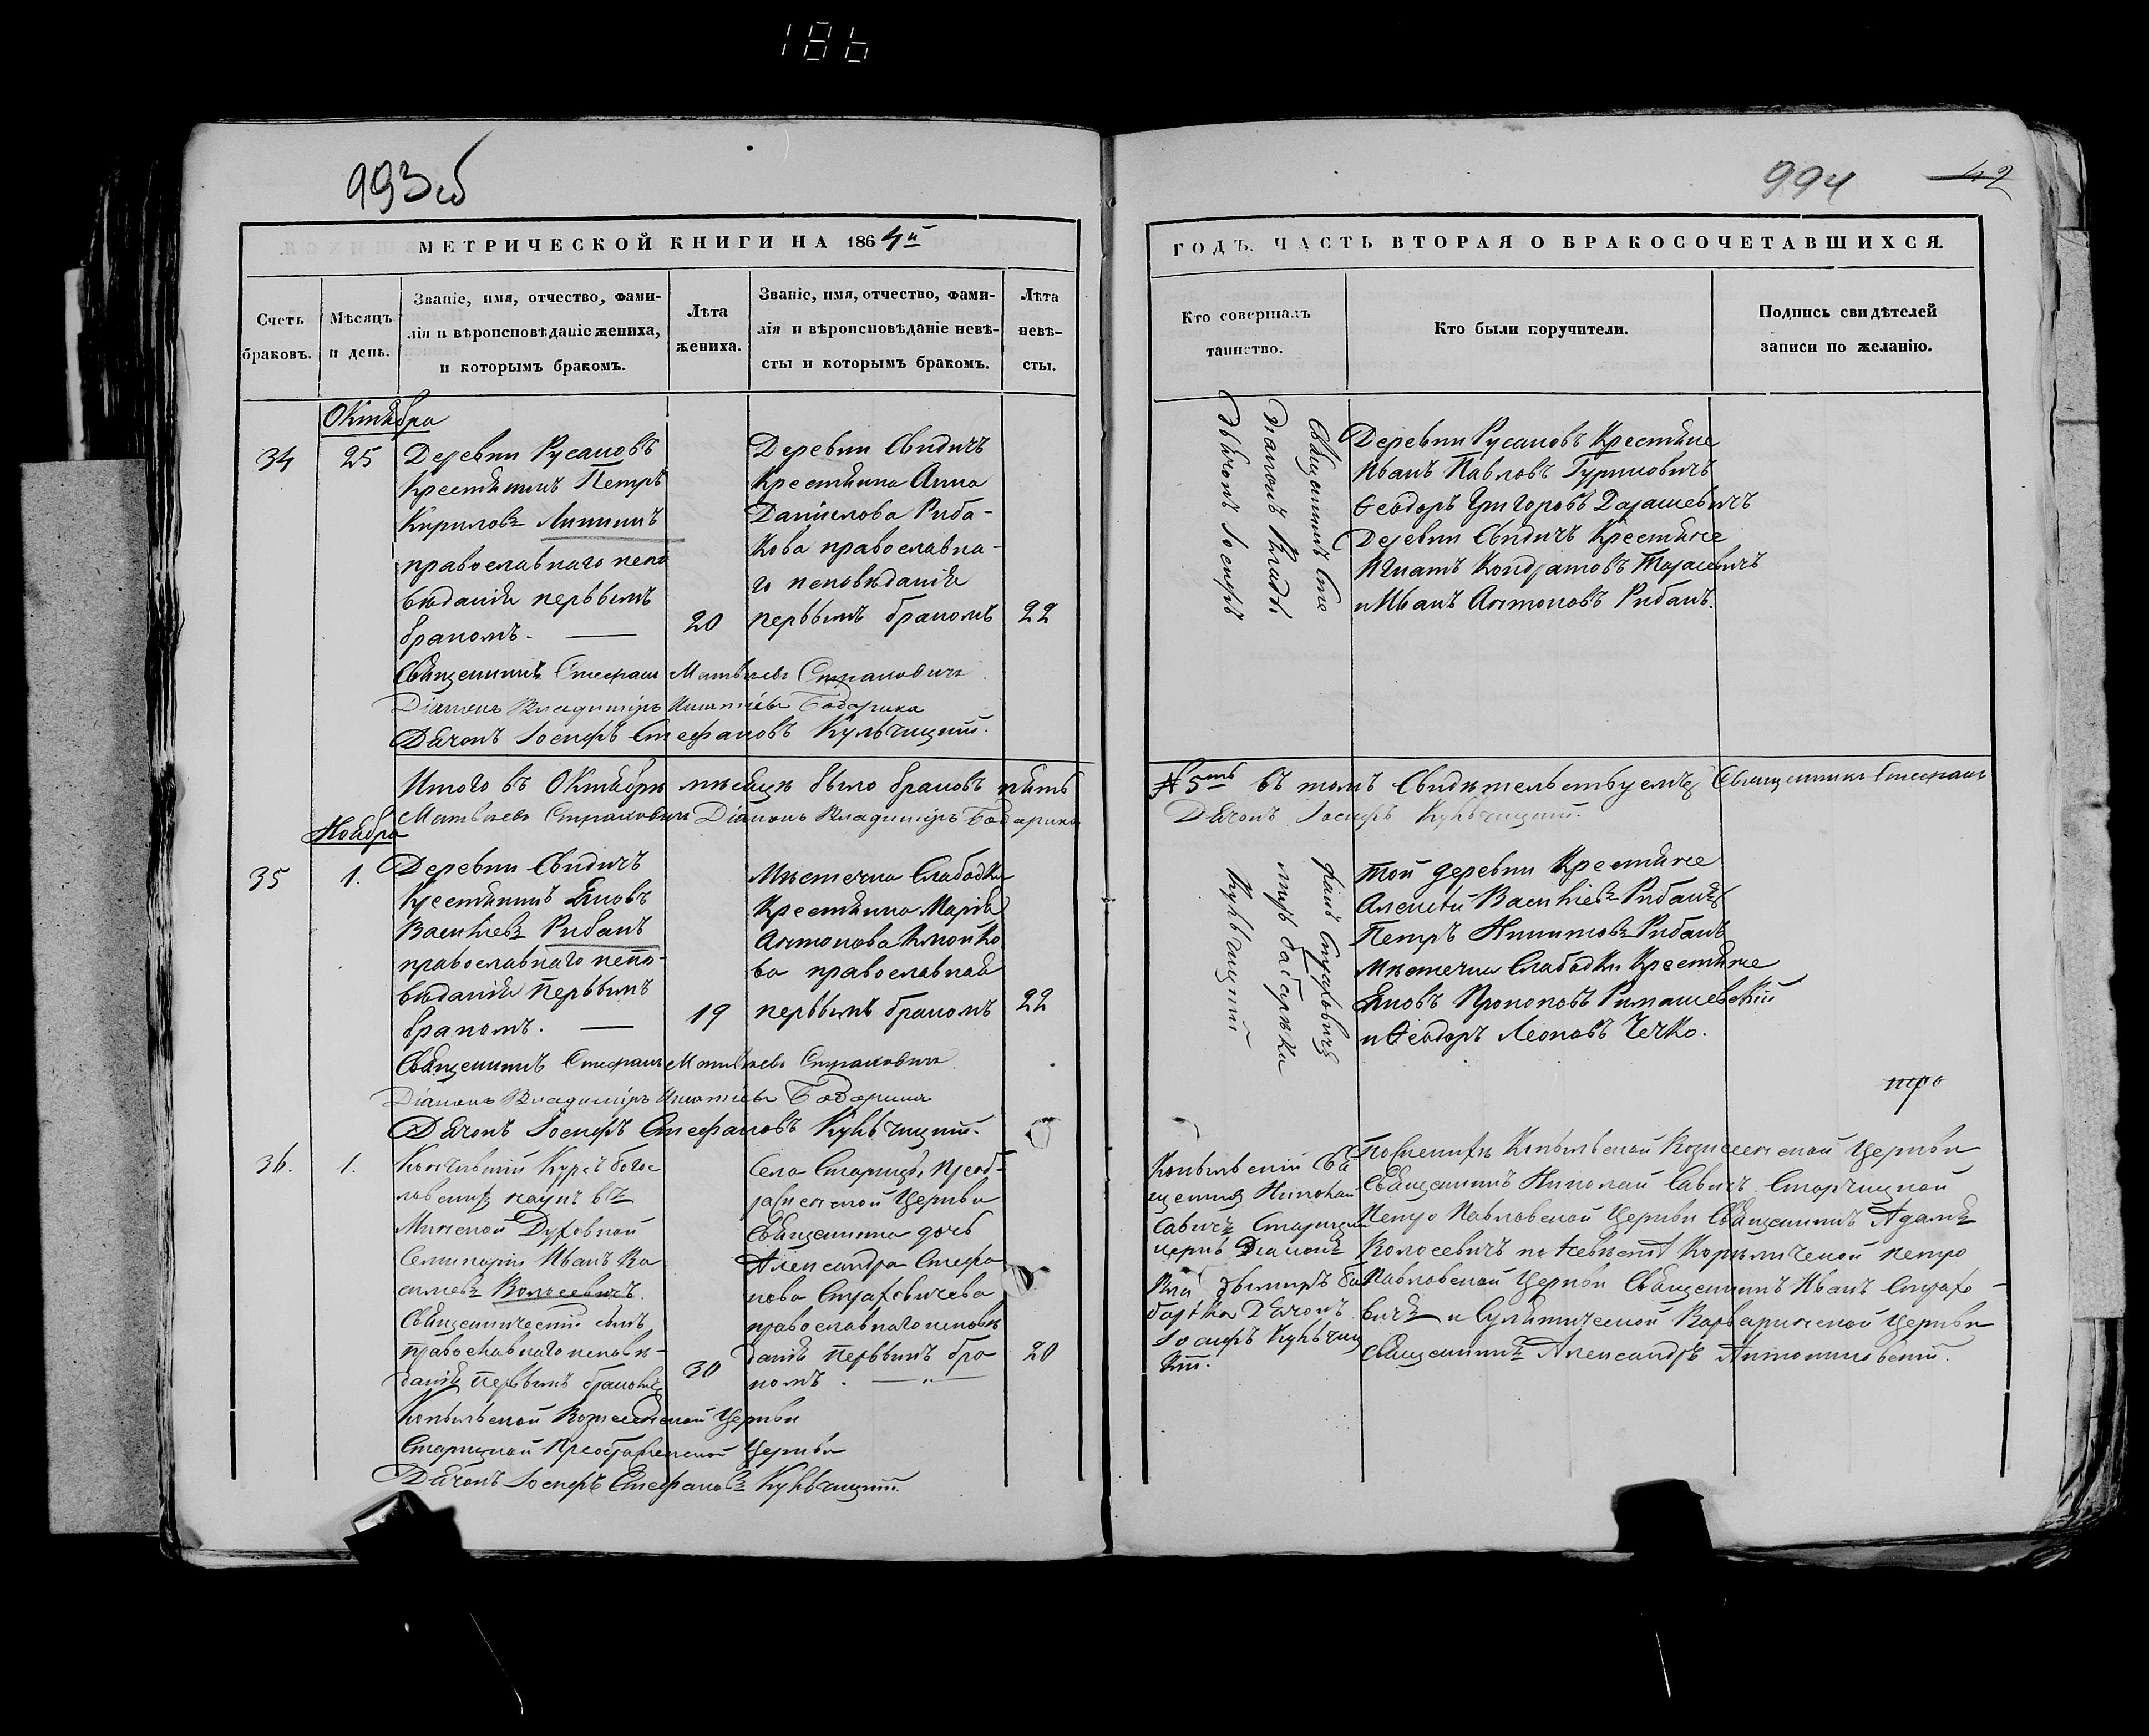 186
993об
МЕТРИЧЕСКОЙ КНИГИ НА 1864й
Счетъ браковъ.
Мѣсяцъ и день.
Званіе, имя, отчество, фами-
лія и вѣроисповѣданіе жениха,
и которымъ бракомъ.
Лѣта жениха.
Званіе, имя, отчество, фами-
лія и вѣроисповѣданіе невѣ-
сты и которымъ бракомъ.
Лѣта невѣ-
сты.
Октября
34
25
Деревни Русановъ
Крестянинъ Петръ
Кириловъ Липинъ
православнаго испо
вѣданія первымъ
бракомъ.
20
Деревни Свидичъ
Крестянка Анна
Даніилова Риба-
кова православна-
го исповѣданія
первымъ бракомъ
22
Священникъ Стефанъ Матвѣевъ Страховичъ
Діаконъ Владимиръ Игнатіевъ
Дьячокъ Іосифъ Стефановъ Кульчицкій.
Итого въ Октябрѣ мѣсяцѣ было браковъ пять
Матвѣевъ Страховичъ Діаконъ Владимиръ
Ноября
35
1.
Деревни Свидичъ
Крестянинъ Яковъ
Василіевъ Рибакъ
православнаго испо-
вѣданія первымъ
бракомъ.
19
Мѣстечка Слабодки
Крестянка Марія
Антонова
ва православная
первымъ бракомъ
22
Священникъ Стефанъ Матвѣевъ Страховичъ
Діаконъ Владимиръ Игнатіевъ
Дьячокъ Іосифъ Стефановъ Кульчицкій.
36.
1.
Кончившій Курсъ богос
ловскихъ наукъ въ
Минской Духовной
Семинаріи Иванъ Ва
силіевъ Колосевичъ.
Священническій сынъ
православнаго исповѣ-
данія первымъ бракомъ
30
Села Старицы, Преоб-
раженской Церкви
Священника дочь
Александра Стефа
нова Страховичева
православнаго исповѣ
данія первымъ бра
комъ.
20
Копыльской Вознесенской Церкви
Старицкой Преображенской Церкви
Дьячокъ Іосифъ Стефановъ Кульчицкій.
994
42
ГОДЪ. ЧАСТЬ ВТОРАЯ О БРАКОСОЧЕТАВШИХСЯ.
Кто совершалъ
таинство.
Кто были поручители.
Подпись свидѣтелей
записи по желанію.
Священникъ Сте
Діаконъ Влади
Дьячокъ Іосифъ
Деревни Русановъ Крестяне
Иванъ Павловъ Гуриновичъ
Ѳеодоръ Григоровъ Дарашевичъ
Деревни Свидичъ Крестяне
Игнатъ Кондратовъ Тарасевичъ
и Иванъ Антоновъ Рибакъ.
# 5ть въ томъ Свидѣтельствуемъ Священникъ Стефанъ
Дьячокъ Іосифъ Кульчицкій.
фанъ Страховичъ
миръ
Кульчицкій
той деревни Крестяне
Алексѣй Василіевъ Рибакъ
Петръ Никитовъ Рибакъ
Мѣстечка Слабодки Крестяне
Яковъ Прокоповъ Римашевскій
и Ѳеодоръ Леоновъ Чечко.
тро
Копыльскій Свя
щенникъ Николай
Савичъ Старицкой
церкви Діаконъ
Влядимиръ
Дьячокъ
Іосифъ Кульчиц
кій.
По Копыльской Вознесенской Церкви
Священникъ Николай Савичъ, Старчицкой
Петро Павловской Церкви Священникъ Адамъ
Колосевичъ по невѣстѣ петро
Павловской Церкви Священникъ Иванъ Страхо-
вичъ и Варваринской Церкви
Священникъ Александръ